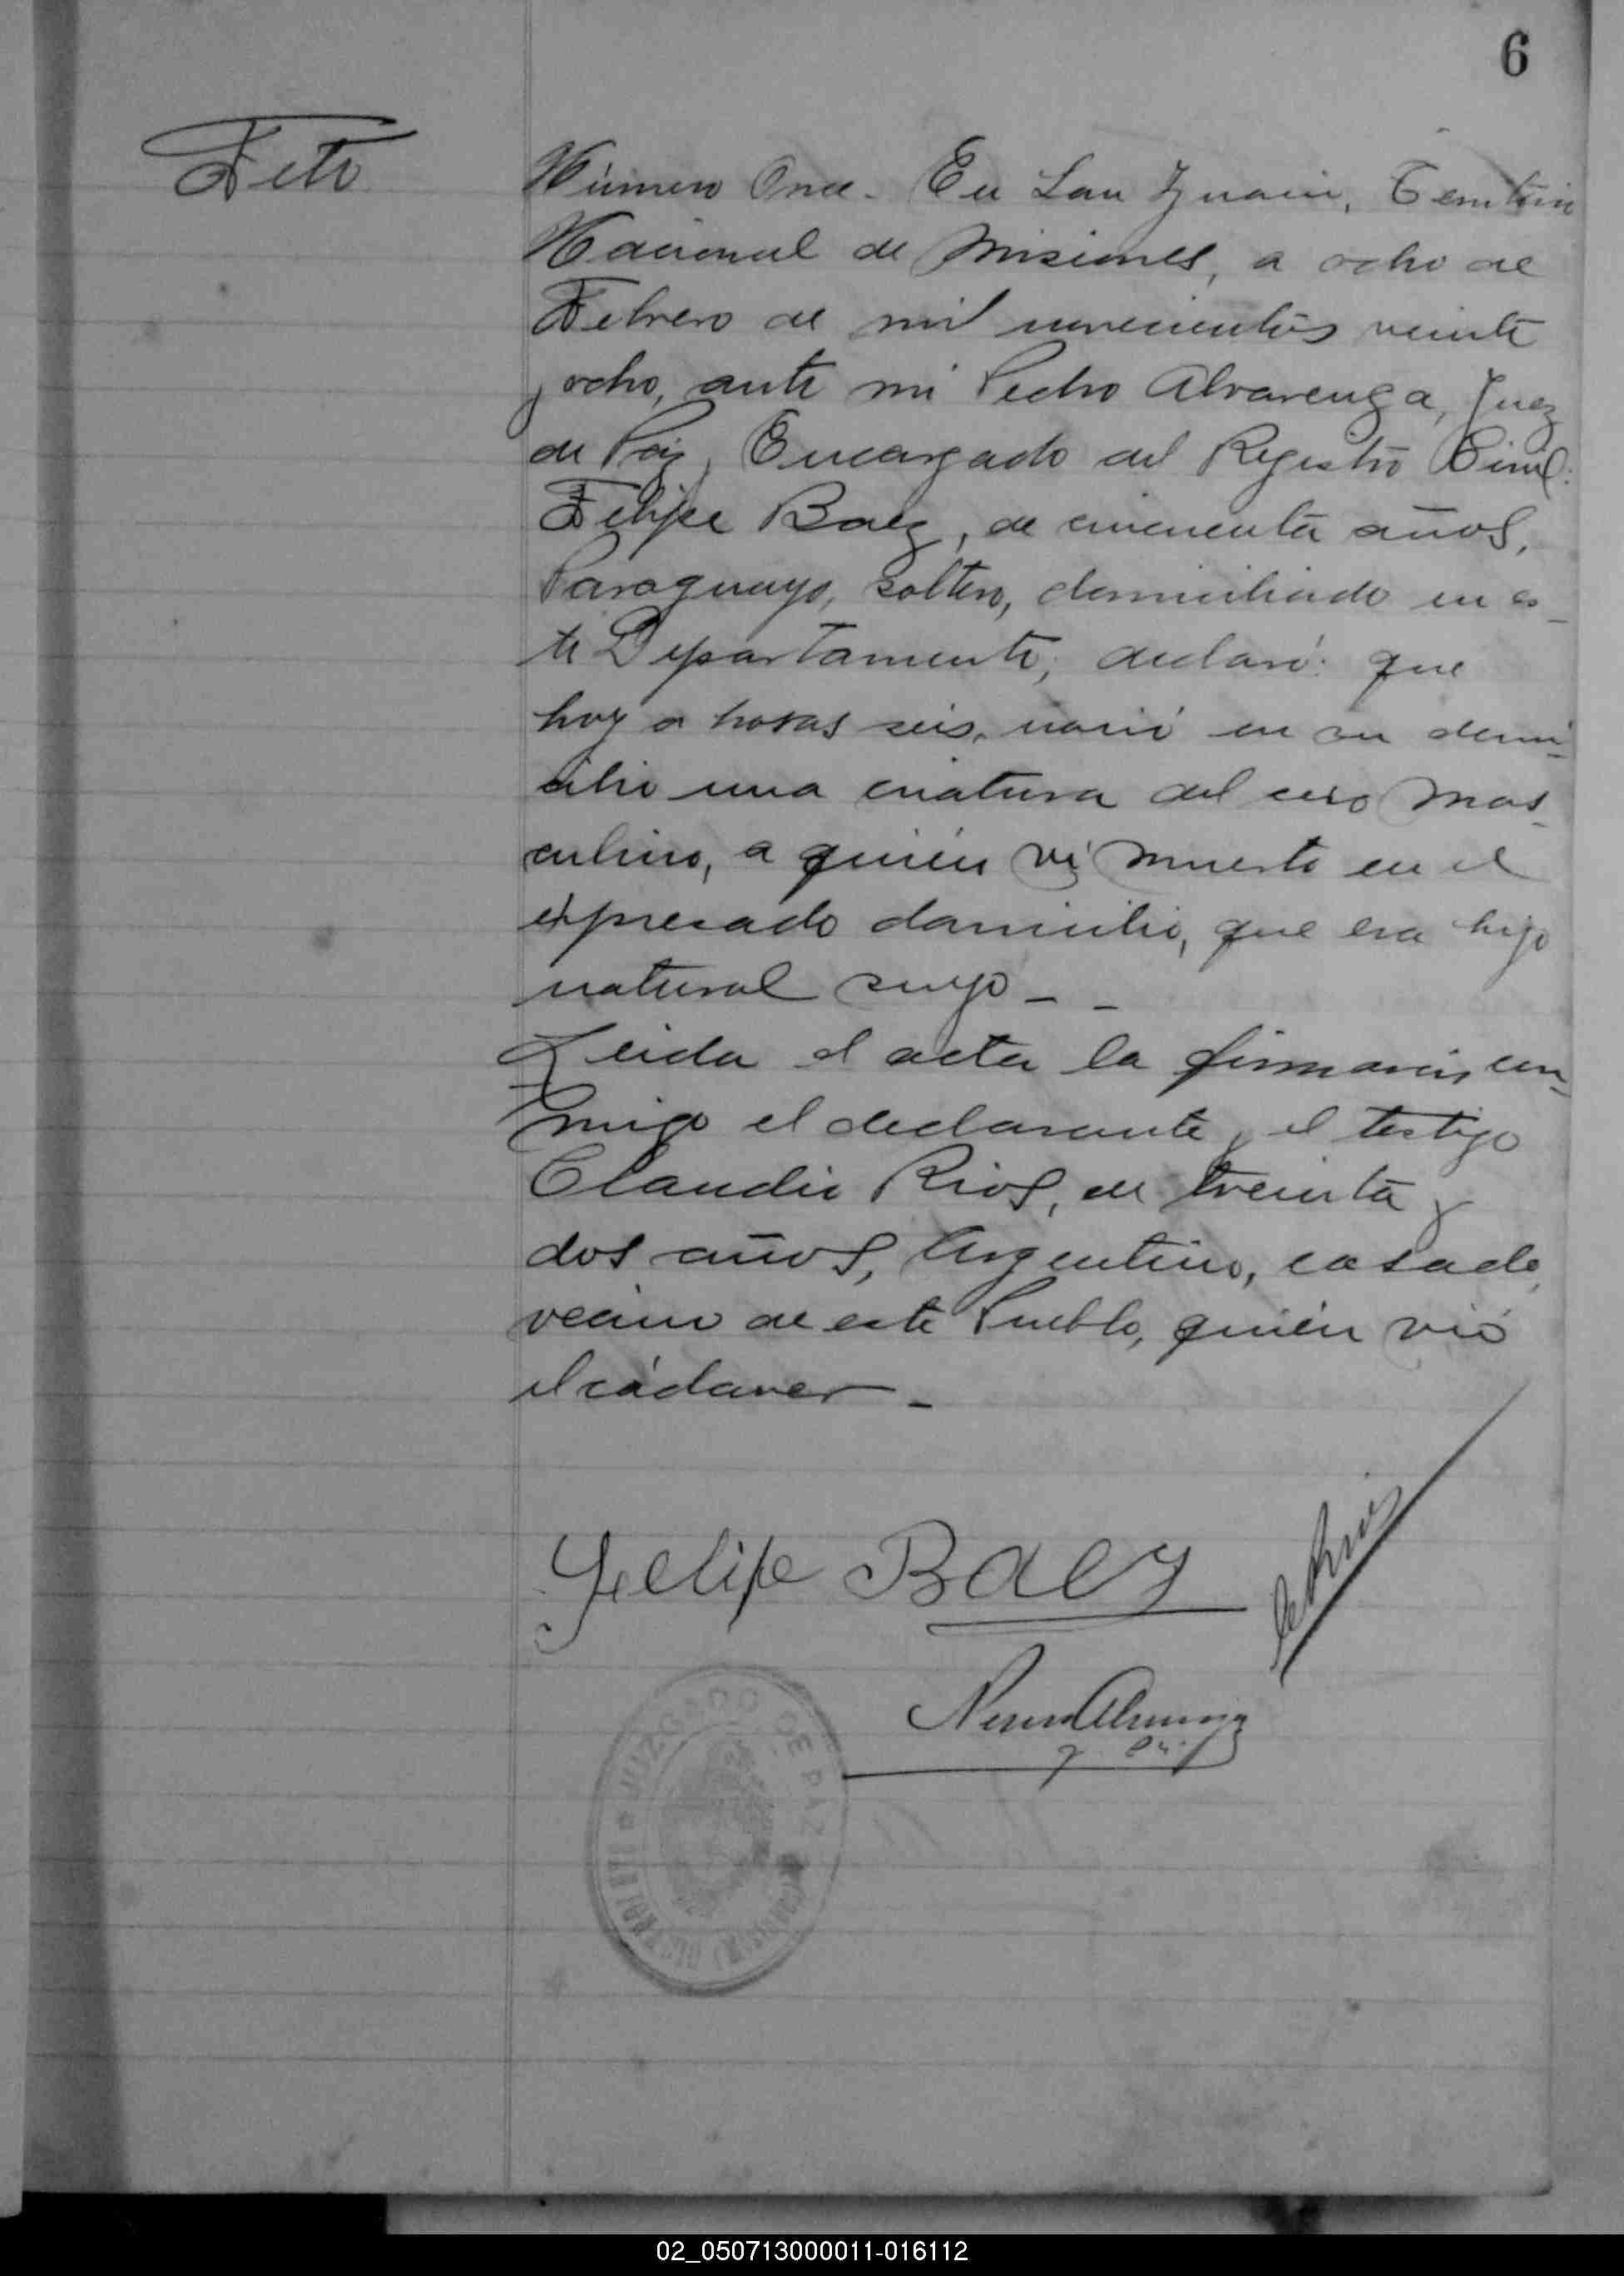 6
Feto
Número Once. En San Ignacio, Territorio
Nacional de Misiones, a ocho de
Febrero de mil novecientos veinte
y ocho, ante mi Pedro Alvarenga, Juez
de Paz, Encargado del Registro Civil:
Felipe Baez, de cincuenta años,
Paraguayo, soltero, domiciliado en es-
te Departamento, declaró: que
hoy a horas seis, nació en su domi-
cilio una criatura del sexo mas-
culino, a quién vi muerto en el
expresado domicilio, que era hijo
natural suyo - -
Leida el acta la firmaron con-
migo el declarante y el testigo
Claudio Rios, de treinta y
dos años, Argentino, casado,
vecino de este Pueblo, quién vió
el cádaver -
Felipe Baez
C Rios
JUZGADO DE PAZ
02_050713000011-016112